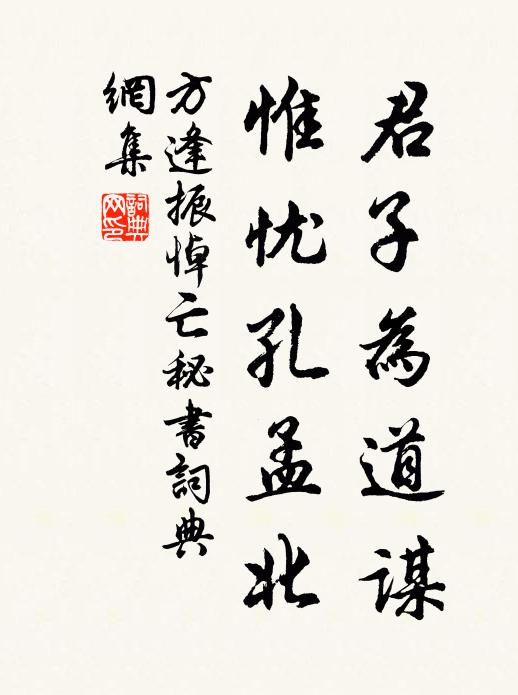 君子為道謀
惟忧孔孟北
方逢振悼亡秘書詞典
網集
詞典
网印